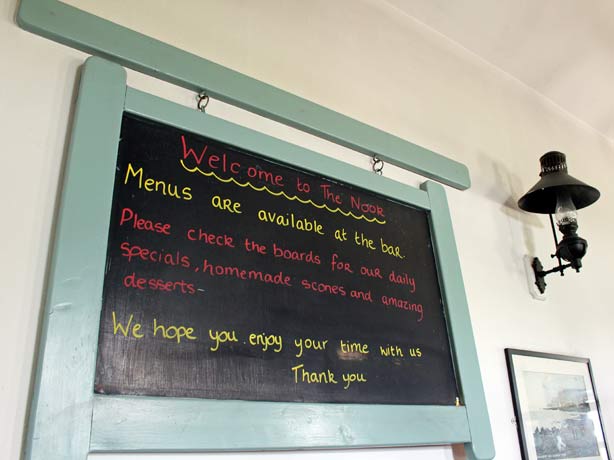 Welcome to The Nook
Menus are available at the bar.
Please check the boards for our daily
specials, homemade scones and amazing
desserts-
We hope you enjoy your time with us
Thank you